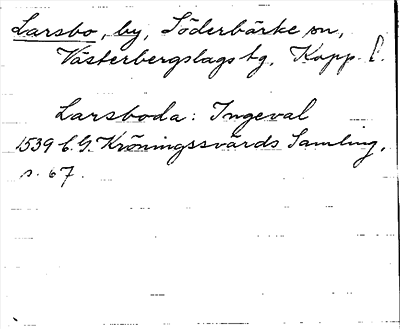 Larsbo, by, Söderbärke sn,
Västerbergslags tg, Kopp. l.
Larsboda: Ingeval
1539 C. G. Kröningssvärds Samling,
s. 67.